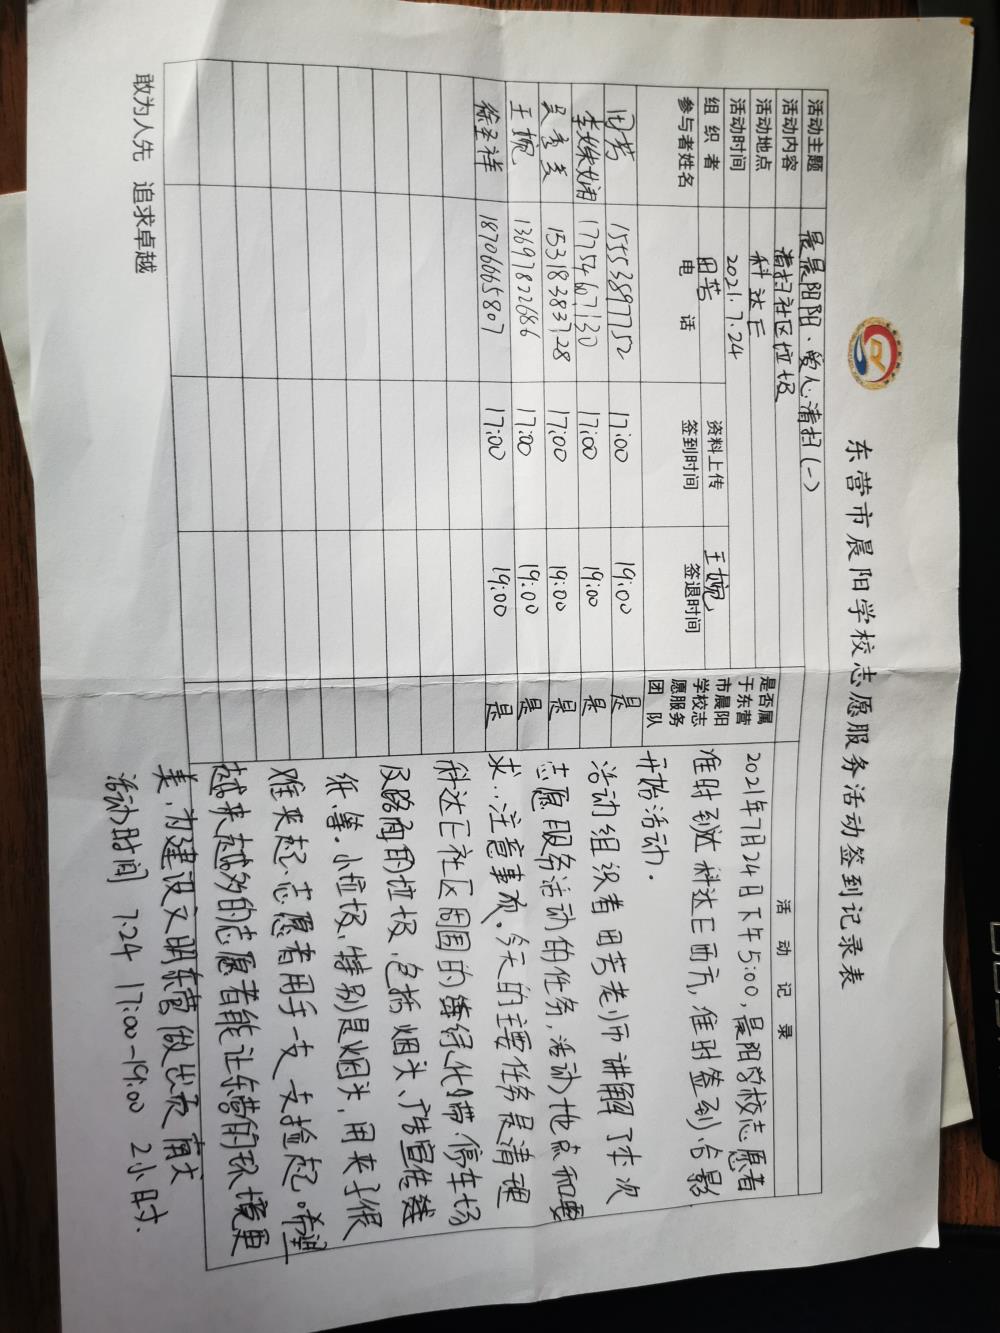 东营市晨阳学校志愿服务活动签到记录表
活动主题 晨晨阳阳、爱心清扫(一)
活动内容 清扫社区垃圾
活动地点 科达E
活动时间 2021.7.24
组织者 田芳 资料上传 王婉
参与者姓名 电话 签到时间 签退时间 是否属于东营市晨阳学校志愿服务团队
田芳 15553897752 17:00 19:00 是
李姝姷 17754607130 17:00 19:00 是
吴秀美 15318383728 17:00 19:00 是
王婉 13697822686 17:00 19:00 是
徐圣祥 18706665807 17:00 19:00 是
活动记录
2021年7月24日下午5:00,晨阳学校志愿者
准时到达科达E西方,准时签到、合影
开始活动.
活动组织者田芳老师讲解了本次
志愿服务活动的任务,活动地点和要
求..注意事项、今天的主要任务是清理
科达E社区周围的绿化带、停车场
及路面的垃圾,包括烟头、广告宣传
纸.等.小垃圾,特别是烟头,用夹子很
难夹起.志愿者用手一支一支捡起.希望
越来越多的志愿者能让东营的环境更
美,为建设文明东营做出贡献
活动时间 7.24 17:00-19:00 2小时.
敢为人先 追求卓越